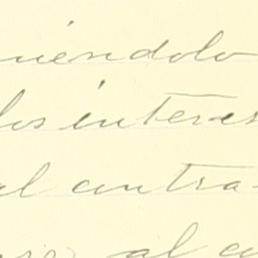 niéndolo
los interes
al contra-
al co